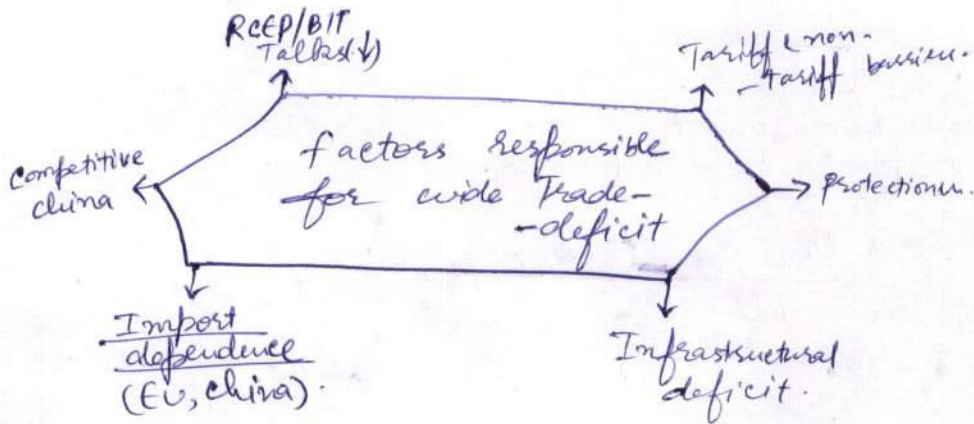 RCEP/BIT
Talks(↓)
Tariff & non-
-tariff barriers.
Competitive
china
factors responsible
for wide Trade-
-deficit
Protectionism.
Import
dependence
(EU, china).
Infrastructural
deficit.